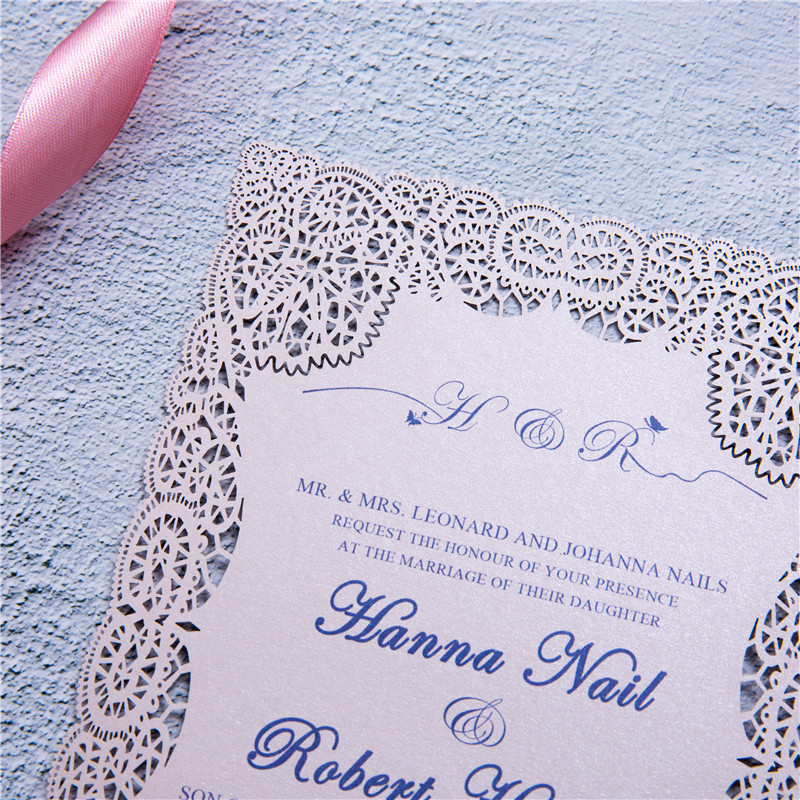 H & R
MR. & MRS. LEONARD AND JOHANNA NAILS
REQUEST THE HONOUR OF YOUR PRESENCE
AT THE MARRIAGE OF THEIR DAUGHTER
Hanna Nail
&
Robert
SON